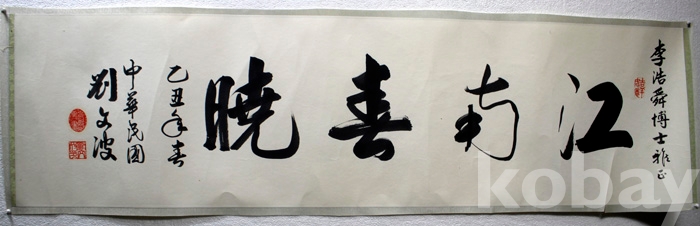 李浩舜博士雅正
江南春曉
乙丑年春
中華民國
劉文波
kobay